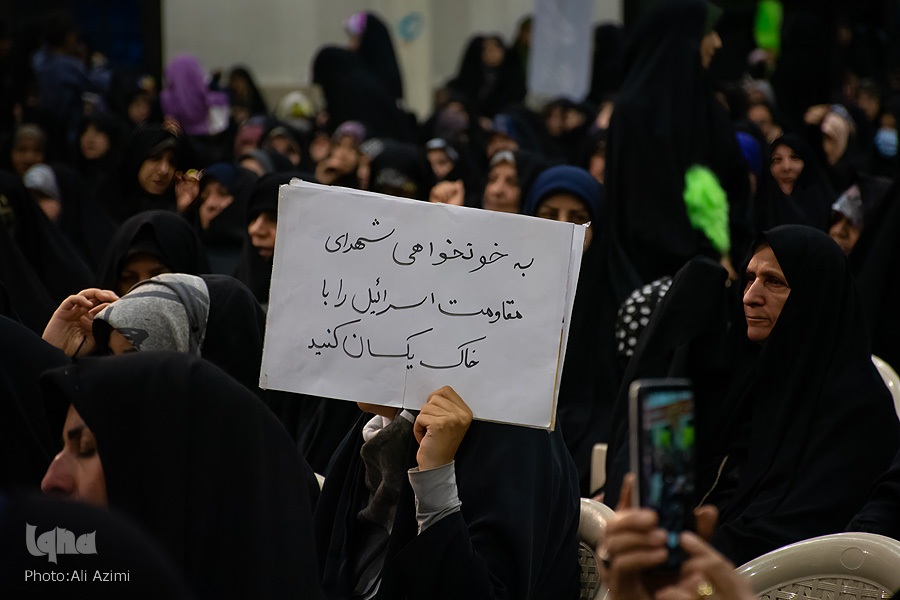 به خونخواهی شهدای
مقاومت اسرائیل را با
خاک یکسان کنید
iqna
Photo:Ali Azimi